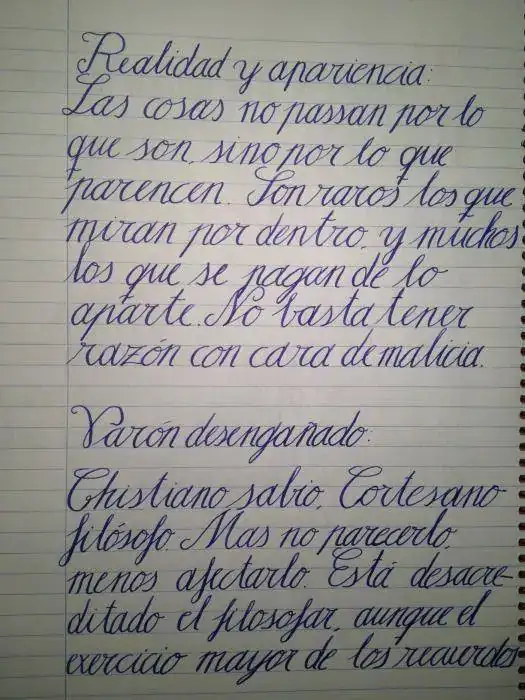 Realidad y apariencia:
Las cosas no passan por lo
que son, sino por lo que
parencen. Son raros los que
miran por dentro, y muchos
los que se pagan de lo
aparte. No basta tener
razón con cara de malicia.
Varón desengañado:
Chistiano sabio, Cortesano
filósofo. Mas no parecerlo,
menos afectarlo. Está desacre-
ditado el filosofar, aunque el
exercicio mayor de los recuerdos